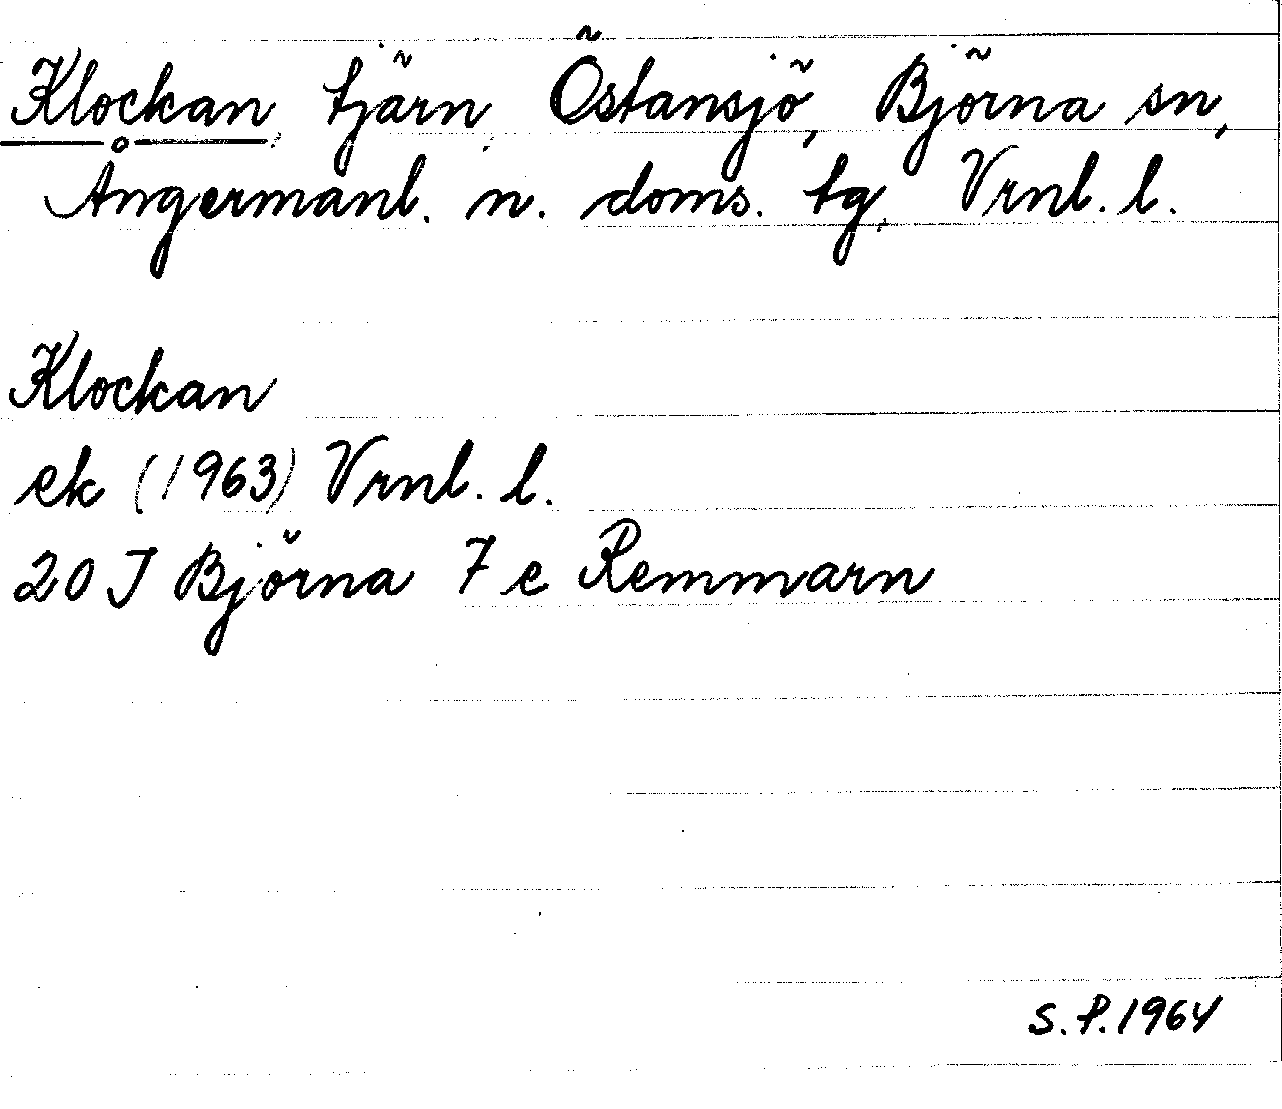 Klockan, tjärn, Östansjö, Björna sn,
Ångermanl. n. doms. tg, Vrnl. l.
Klockan
ek (1963) Vrnl. l.
20 J Björna 7 e Remmarn
S.P. 1964